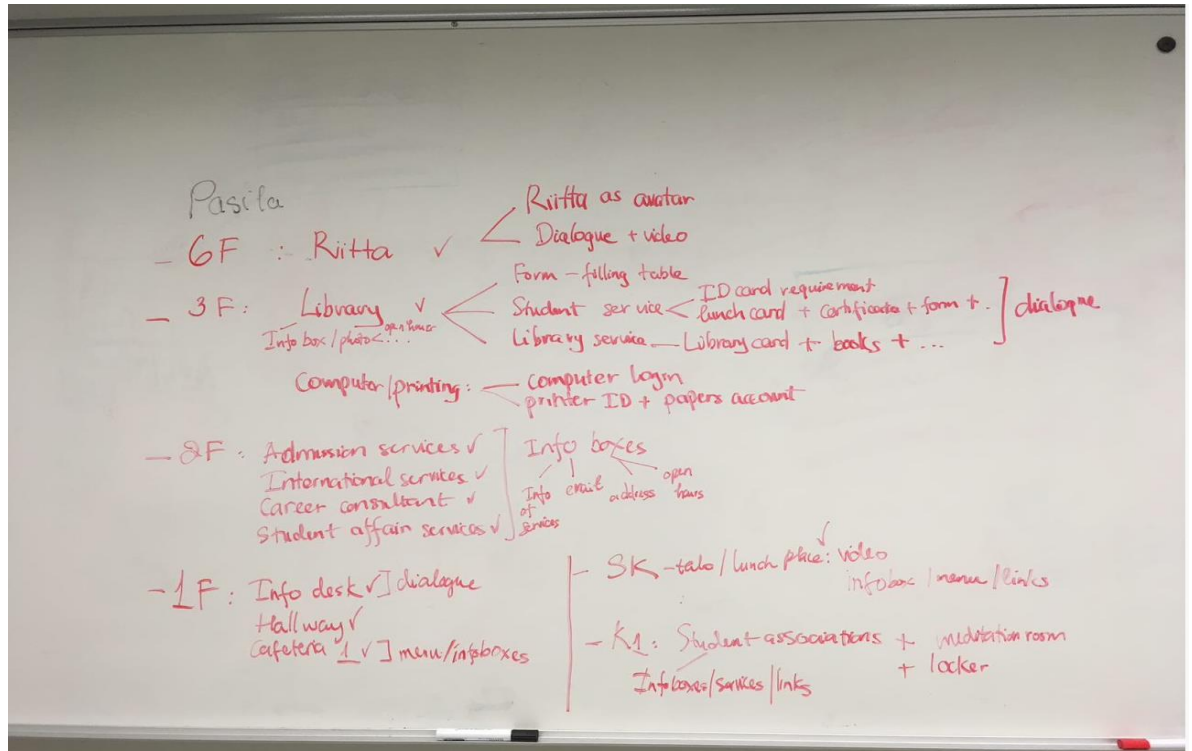 Pasila
Riitta as avatar
- 6F : Riitta ✓
Dialogue + video
Form - filling table
- 3F: Library ✓
Info box / photo < ...
open hours
Student service < ID card requirement
lunch card + certificate + form + .
Library service — Library card + books + ...
] dialogue
Computer/printing: — computer login
printer ID + papers account
- 2F: Admission services ✓
International services ✓
Career consultant ✓
Student affair services ✓
Info boxes
Info of services
email
address
open hours
- 1F: Info desk ✓ ] dialogue
Hallway ✓
Cafeteria 1 ✓ ] menu/infoboxes
- SK-talo/lunch place: video ✓
infobox / menu / links
- K1: Student associations + meditation room
+ locker
Infoboxes/services/links